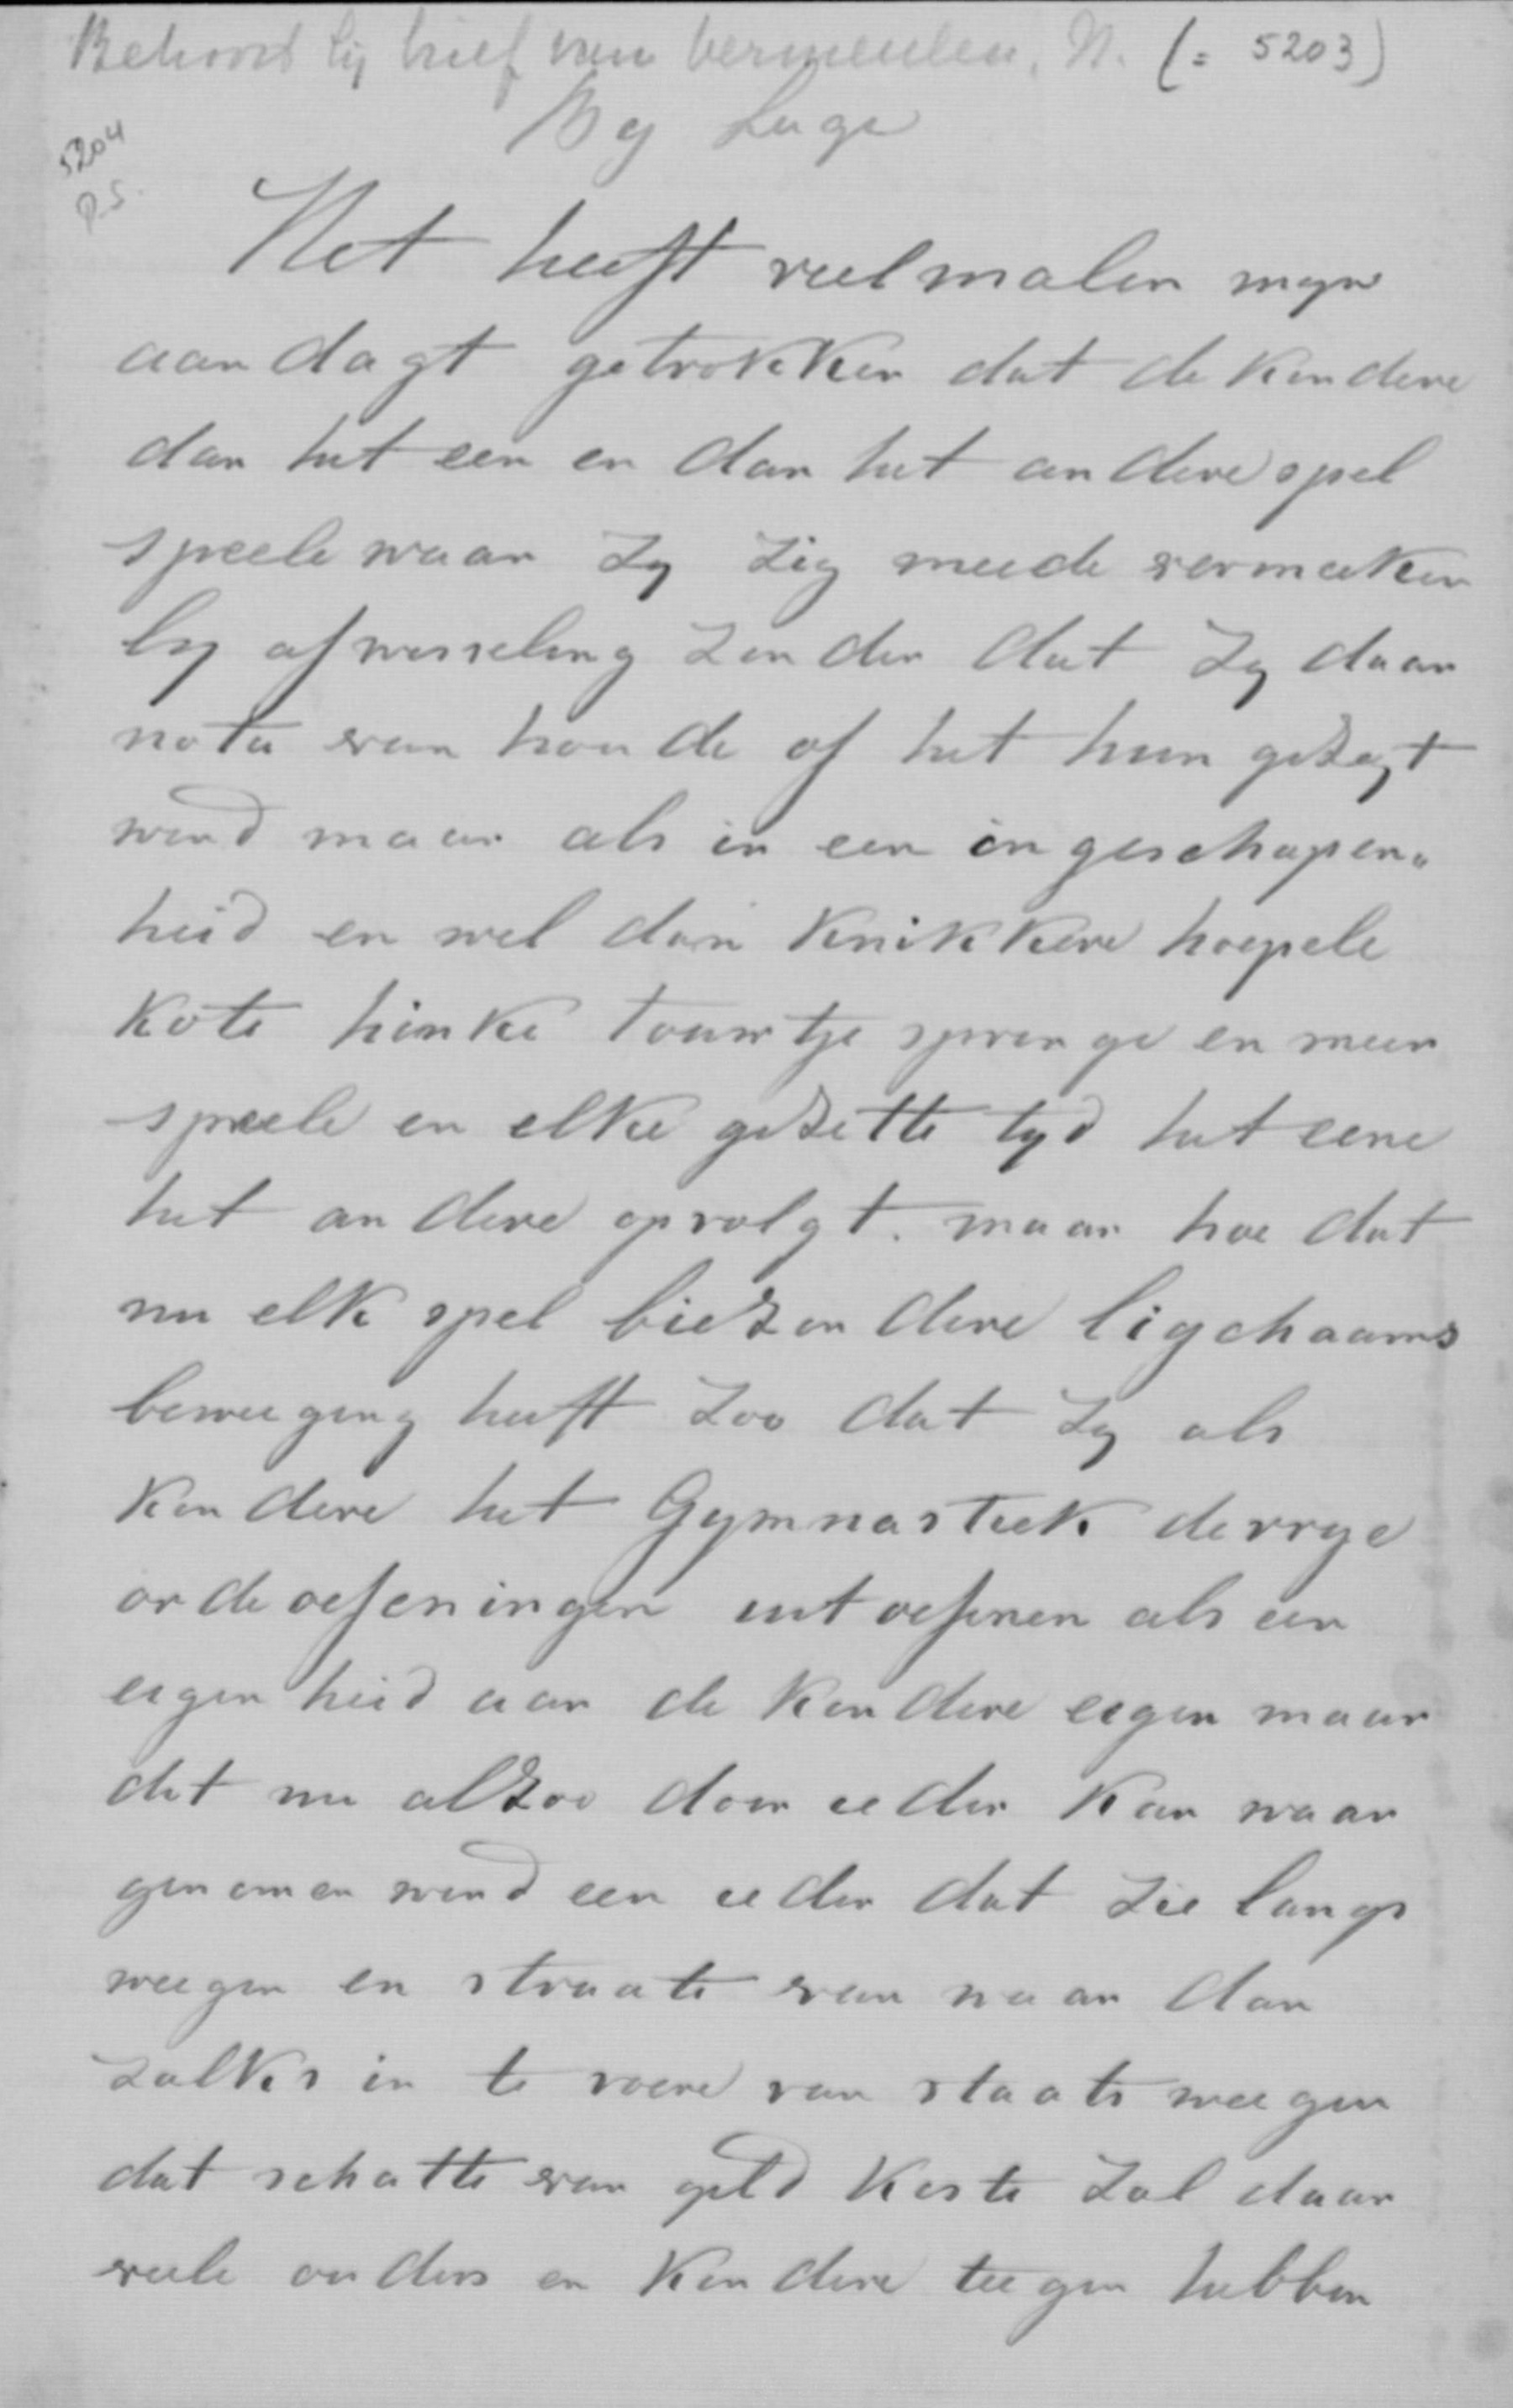 Behoort bij brief van Vermeulen, N. (= 5203)
By Lage
5204
P.S.
Het heeft veelmalen myn
aandagt getrokken dat de kindere
dan het een en dan het andere spel
speele waar zy zig meede vermaken
by afwisseling zonder dat zy daar
nota van houde of het hun gezegt
werd maar als in een ingeschapen„
heid en wel dan knikkere hoepele
kote hinke touwtje springe en meer
speele en elke gezette tyd het eene
het andere opvolgt. maar hoe dat
nu elk spel biezondere ligchaams
beweeging heeft zoo dat zy als
kindere het Gymnastiek de vrye
orde oefeningen uitoefenen als een
eigenheid aan de kindere eigen maar
dit nu alzoo door ieder kan waar
genomen werd een ieder dat zie langs
weegen en straate van waar dan
zulks in te voere van staats weegen
dat schatte van geld koste zal daar
veele ouders en kindere teegen hebben